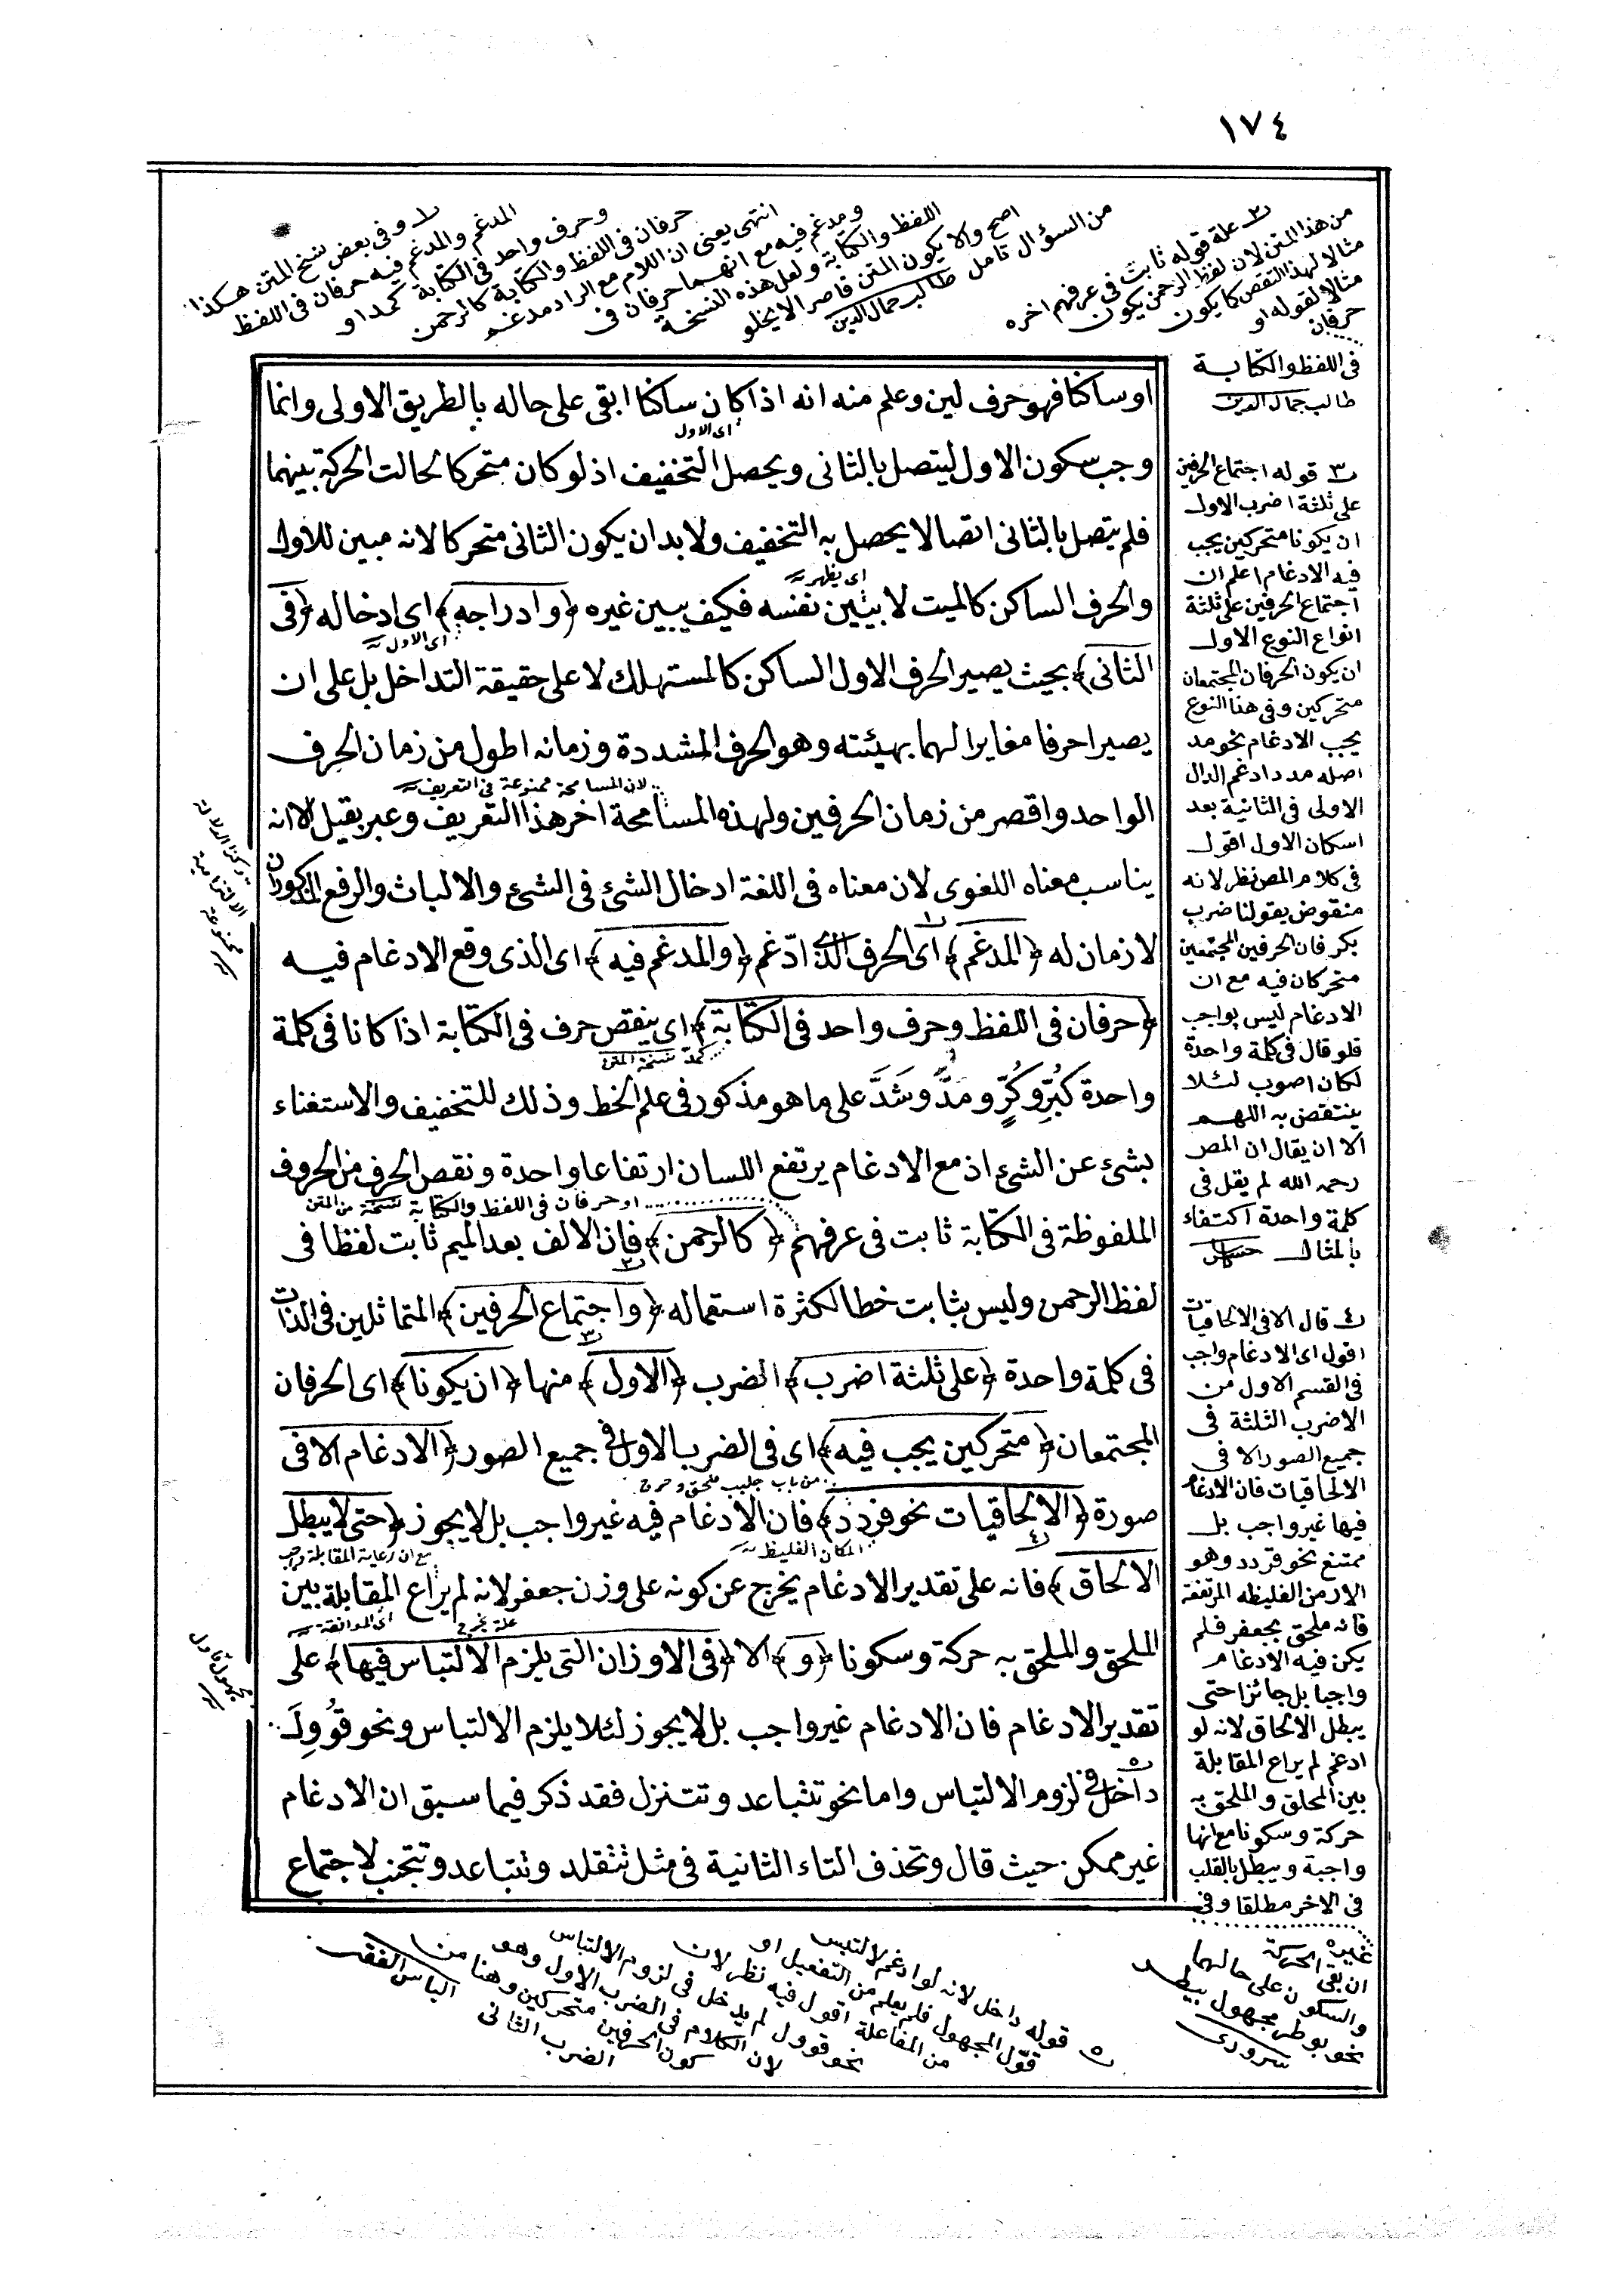 ١٧٤
لا وفى بعض نسخ المتن هكذا
المدغم والمدغم فيه حرفان فى اللفظ
وحرف واحد فى الكتابة كمد او
حرفان فى اللفظ والكتابة كالرحمن
انتهى يعنى ان اللام مع الراء مدغم
ومدغم فيه مع انهما حرفان فى
اللفظ والكتابة ولعل هذه النسخة
اصح والا يكون المتن قاصرا لا يخلو
من السؤال تامل طالب جمال الدين
٢ علة قوله ثابت فى عرفهم اخره
من هذا المتن لان لفظ الرحمن يكون
مثالا لهذا النقص كما يكون
مثالا لقوله او
حرفان
فى اللفظ والكتابة
طالب جمال الدين
اوساكنا فهو حرف لين وعلم منه انه اذا كان ساكنا ابقى على حاله بالطريق الاولى وانما
اى الاول
وجب سكون الاول ليتصل بالثانى ويحصل التخفيف اذ لو كان متحركا لحالت الحركة بينهما
فلم يتصل بالثانى اتصالا يحصل به التخفيف ولا بد ان يكون الثانى متحركا لانه مبين للاول
اى يظهر
والحرف الساكن كالميت لا يبين نفسه فكيف يبين غيره ﴿وادراجه﴾ اى ادخاله ﴿فى
اى الاول
الثانى﴾ بحيث يصير الحرف الاول الساكن كالمستهلك لا على حقيقة التداخل بل على ان
يصيرا حرفا مغايرا لهما بهيئته وهو الحرف المشددة وزمانه اطول من زمان الحرف
لان المسامحة ممنوعة فى التعريف
الواحد واقصر من زمان الحرفين ولهذه المسامحة اخر هذا التعريف وعبر بقيل الا انه
يناسب معناه اللغوى لان معناه فى اللغة ادخال الشئ فى الشئ والالباث والرفع المذكوران
لا زمان له ﴿المدغم﴾ اى الحرف الذى ادّغم ﴿والمدغم فيه﴾ اى الذى وقع الادغام فيه
﴿حرفان فى اللفظ وحرف واحد فى الكتابة﴾ اى ينقص حرف فى الكتابة اذا كانا فى كلمة
كمدّ نسخة المتن
واحدة كبُرِّ وكُرٍّ ومَدَّ وشَدَّ على ما هو مذكور فى علم الخط وذلك للتخفيف والاستغناء
بشئ عن الشئ اذ مع الادغام يرتفع اللسان ارتفاعا واحدة ونقص الحرف من الحروف
او حرفان فى اللفظ والكتابة نسخة من المتن
الملفوظة فى الكتابة ثابت فى عرفهم ﴿كالرحمن﴾ فان الالف بعد الميم ثابت لفظا فى
لفظ الرحمن وليس بثابت خطا لكثرة استعماله ﴿واجتماع الحرفين﴾ المتماثلين فى الذات
فى كلمة واحدة ﴿على ثلثة اضرب﴾ الضرب ﴿الاول﴾ منها ﴿ان يكونا﴾ اى الحرفان
المجتمعان ﴿متحركين يجب فيه﴾ اى فى الضرب الاول فى جميع الصور ﴿الادغام الا فى
من باب جلبب ملحق دحرج
صورة ﴿الالحاقيات نحو قردد﴾ فان الادغام فيه غير واجب بل لا يجوز ﴿حتى لا يبطل
المكان الغليظ
مع ان رعاية المقابلة واجب
الالحاق﴾ فانه على تقدير الادغام يخرج عن كونه على وزن جعفر لانه لم يراع المقابلة بين
علة يخرج
اى الموافقة
الملحق والملحق به حركة وسكونا ﴿و﴾ الا ﴿فى الاوزان التى يلزم الالتباس فيها﴾ على
تقدير الادغام فان الادغام غير واجب بل لا يجوز لئلا يلزم الالتباس ونحو قُوْوِلَ
داخل فى لزوم الالتباس واما نحو تتباعد وتتنزل فقد ذكر فيما سبق ان الادغام
غير ممكن حيث قال وتحذف التاء الثانية فى مثل تتقلد وتتباعد وتتجنب لاجتماع
٣ قوله اجتماع الحرفين
على ثلثة اضرب الاول
ان يكونا متحركين يجب
فيه الادغام اعلم ان
اجتماع الحرفين على ثلثة
انواع النوع الاول
ان يكون الحرفان المجتمعان
متحركين وفى هذا النوع
يجب الادغام نحو مد
اصله مدد ادغم الدال
الاولى فى الثانية بعد
اسكان الاول اقول
فى كلام المص نظر لانه
منقوض بقولنا ضرب
بكر فان الحرفين المجتمعين
متحركان فيه مع ان
الادغام ليس بواجب
فلو قال فى كلمة واحدة
لكان اصوب لئلا
ينتقض به اللهم
الا ان يقال ان المص
رحمه الله لم يقل فى
كلمة واحدة اكتفاء
بالمثال
٤ قال الا فى الالحاقيات
اقول اى الادغام واجب
فى القسم الاول من
الاضرب الثلثة فى
جميع الصور الا فى
الالحاقيات فان الادغام
فيها غير واجب بل
ممتنع نحو قردد وهو
الارض الغليظه المرتفعة
فانه ملحق بجعفر فلم
يكن فيه الادغام
واجبا بل جائزا حتى
يبطل الالحاق لانه لو
ادغم لم يراع المقابلة
بين المحلق والملحق به
حركة وسكونا مع انها
واجبة ويبطل بالقلب
فى الاخر مطلقا وفى
غيره
ان بقى الحركة
والسكون على حالهما
نحو بوطر مجهول بيطر
سرورى
٥ قوله داخل لانه لو ادغم لالتبس
قوّل المجهول فلم يعلم من التفعيل او
من المفاعلة اقول فيه نظر لان
نحو قوول لم يدخل فى لزوم الالتباس
لان الكلام فى الضرب الاول وهو
كون الحرفين متحركين وهنا من
الضرب الثانى